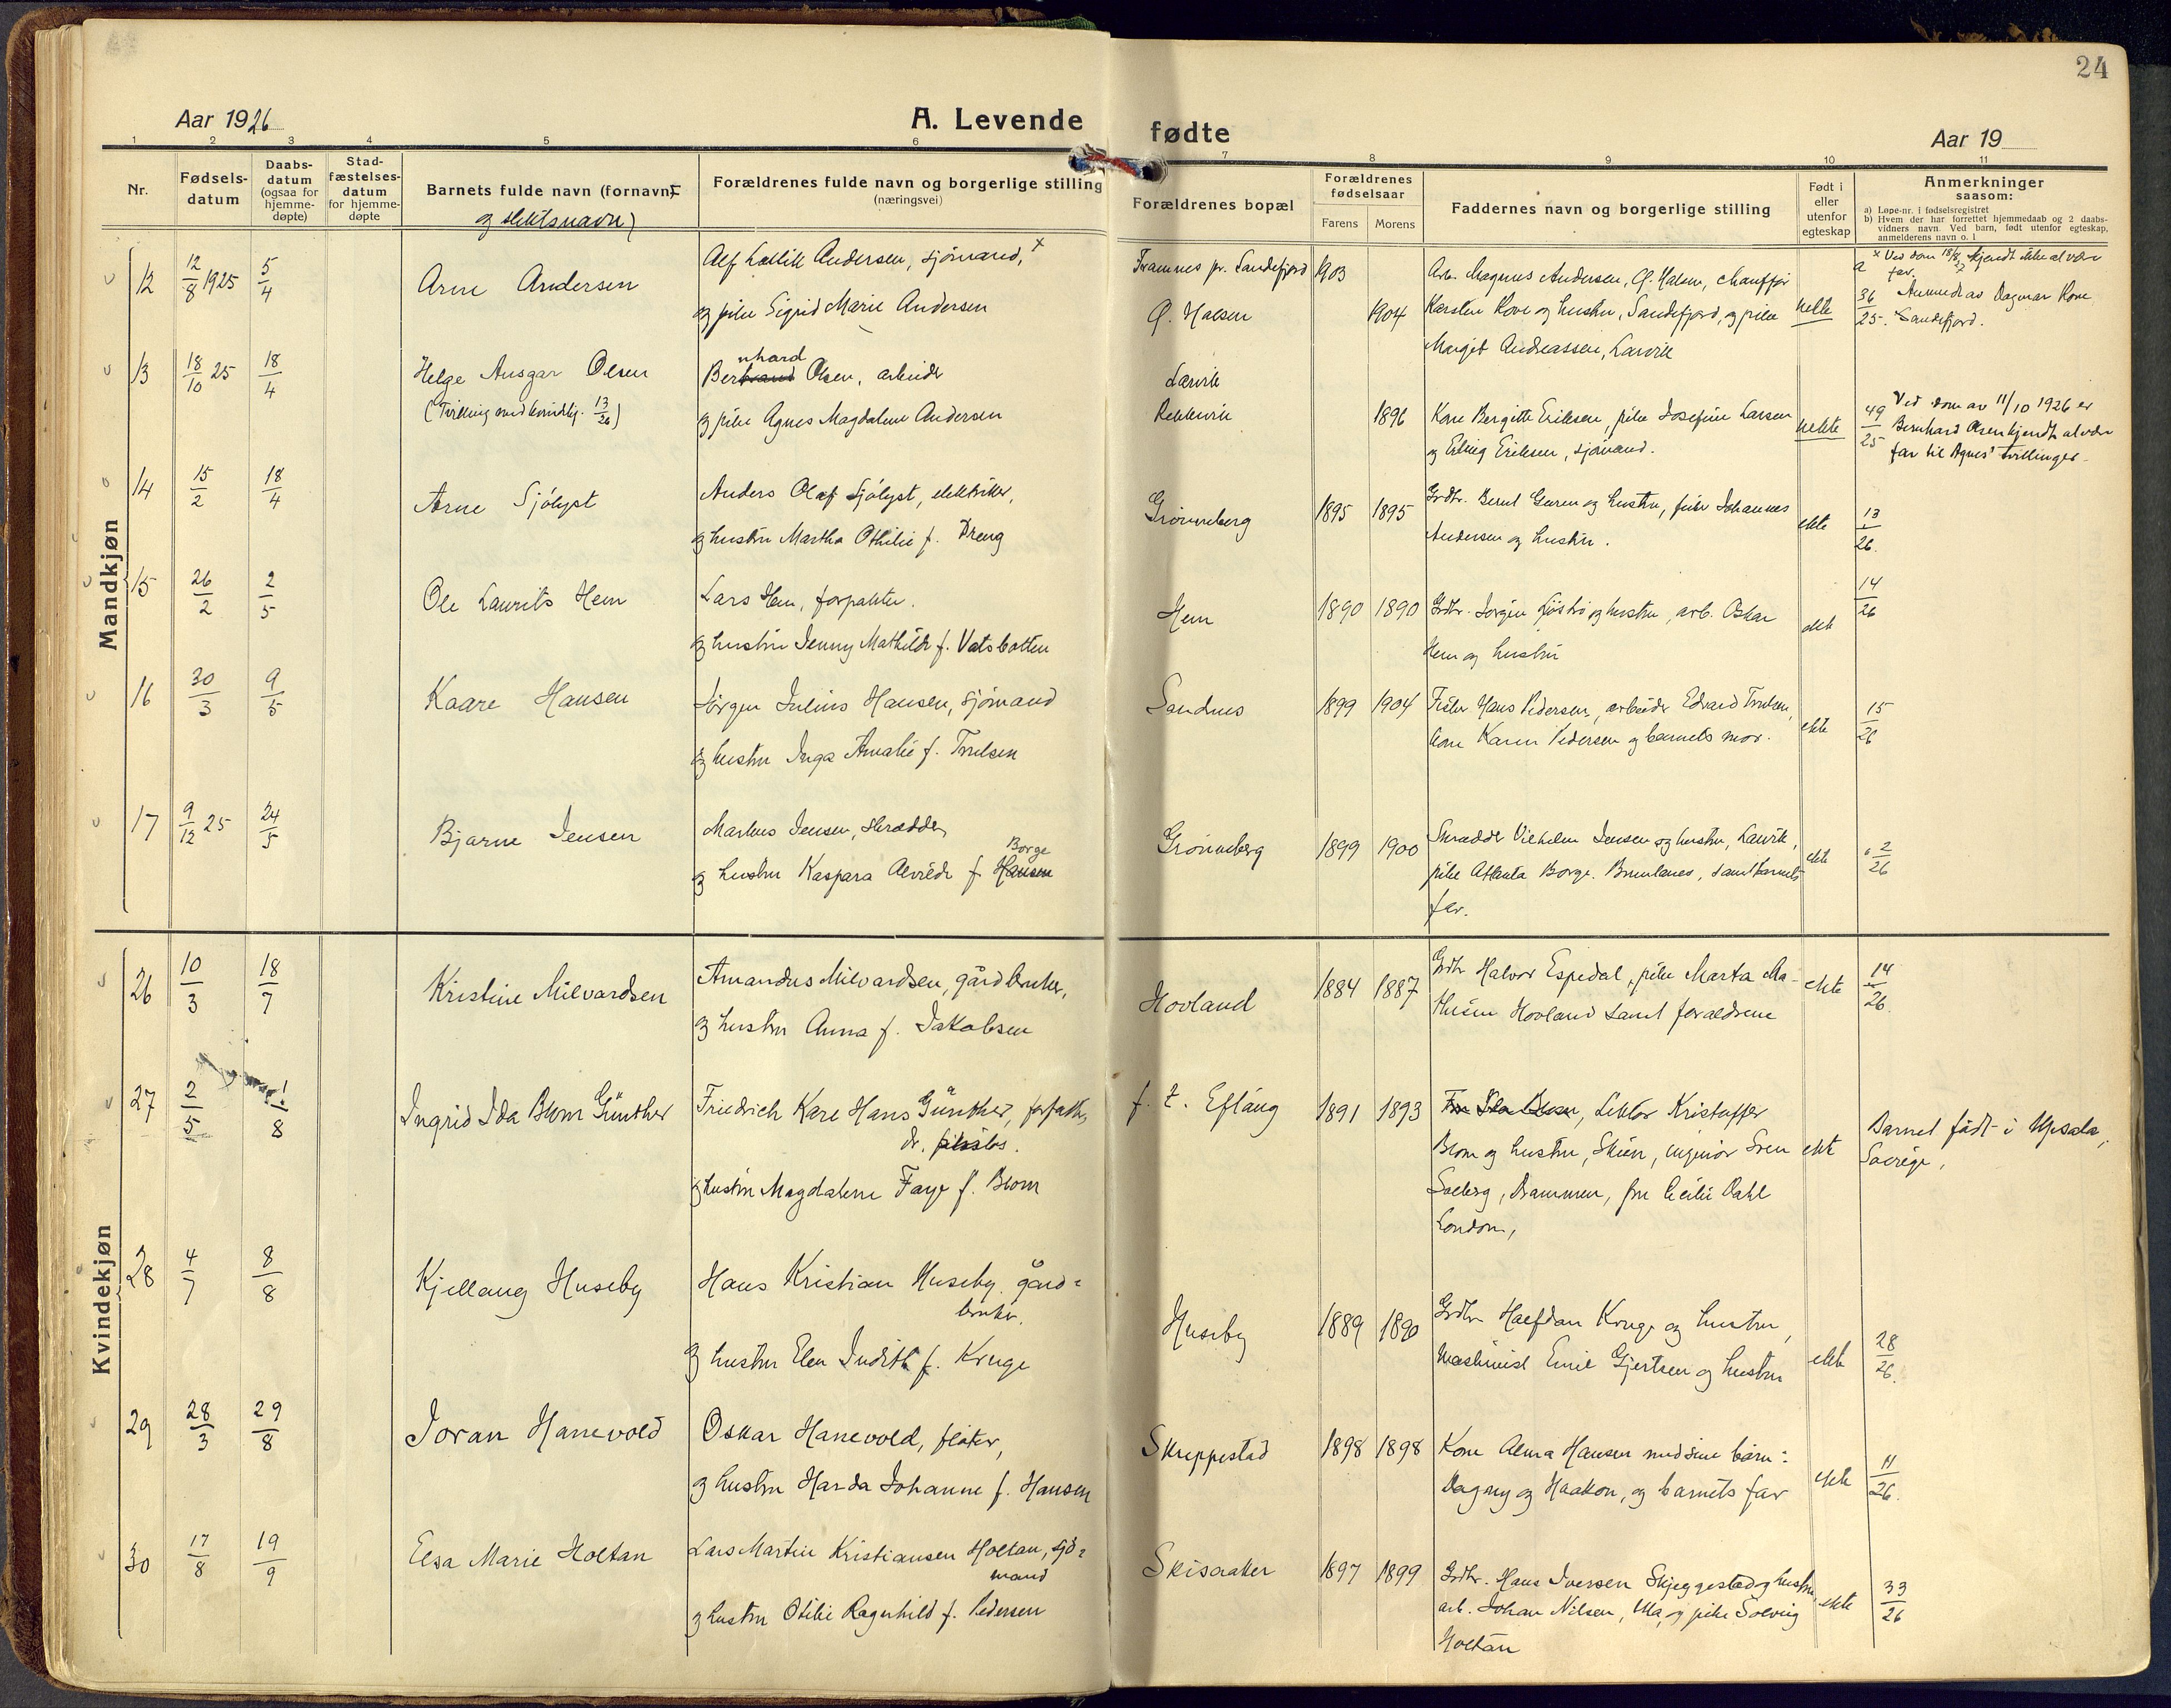 24
Aar 1926
A. Levende
fødte
Aar 19
1 2 3 4 5 6 7 8 9 10 11
Nr.
Fødsels-
datum
Daabs-
datum
(ogsaa for
hjemme-
døpte)
Stad-
fæstelses-
datum
for hjemme-
døpte
Barnets fulde navn (fornavn)
og slektsnavn)
Forældrenes fulde navn og borgerlige stilling
(næringsvei)
Forældrenes bopæl
Forældrenes
fødselsaar
Farens Morens
Faddernes navn og borgerlige stilling
Født i
eller
utenfor
egteskap
Anmerkninger
saasom:
a) Løpe-nr. i fødselsregistret
b) Hvem der har forrettet hjemmedaab og 2 daabs-
vidners navn. Ved barn, født utenfor egteskap,
anmelderens navn o. l
Mandkjøn
12 12/8 1925 5/4 Arne Andersen
Alf Andersen, sjömand, x
og pike Sigrid Marie Andersen
Framnes pr. Sandefjord 1903
Ø. Halsen 1904
Arb. Magnus Andersen, Ø. Halsen, chauffør
Karsten Hove og hustru, Sandefjord, og pike
Margit Andreassen, Larvik
uekte
x Ved dom kjendt ikke at være
far.
36/25. Anmeldt av Dagmar Hove
Sandefjord.
13 18/10 25 18/4 Helge Ansgar Olsen
(Tvilling med kvindkj. 13/26)
Bernhard Olsen, arbeider
og pike Agnes Magdalene Andersen
Larvik
Rekkevik 1896
Kone Bergitte Eriksen, pike Josefine Larsen
og Erling Eriksen, sjömand.
uekte
49/25 Ved dom av 11/10 1926 er
Bernhard Olsen kjendt at være
far til Agnes' tvillinger.
14 15/2 18/4 Arne Sjölyst
Anders Olaf Sjölyst, elektriker,
og hustru Martha Othilie f. Dreng
Grönneberg 1895 1895
Grdbr. Bernt Guren og hustru, fisker Johannes
Andersen og hustru.
ekte 13/26.
15 26/2 2/5 Ole Laurits Hem
Lars Hem, forpakter.
og hustru Jenny Mathilde f. Vatsbotten
Hem 1890 1890
Grdbr. Jörgen og hustru, arb. Oskar
Hem og hustru
ekte 14/26
16 30/3 9/5 Kaare Hansen
Jörgen Julius Hansen, sjömand
og hustru Inga Amalie f. Trulsen
Sandnes 1899 1904
Fisker Hans Pedersen, arbeider Edvard Trulsen,
kone Karen Pedersen og barnets mor.
ekte 15/26
17 9/12 25 24/5 Bjarne Jensen
Markus Jensen, skrædder,
Borge
og hustru Kaspara Alvilde f. Hansen
Grönneberg 1899 1900
Skrædder Vilhelm Jensen og hustru, Larvik,
pike Atlanta Borge. Brunlanes, samt barnets
far.
ekte 2/26
Kvindekjøn
26 10/3 18/7 Kristine Milvardsen
Amandus Milvardsen, gårdbruker,
og hustru Anna f. Jakobsen
Hovland 1884 1887
Grdbr Halvor Espedal, pike Marta Ma-
thisen Hovland samt forældrene
ekte 14/26
27 2/5 1/8 Ingrid Ida Blom Günther
Friedrich Karl Hans Günther, forfatter,
dr. filosos.
og hustru Magdalene Faye f. Blom
f. t. Eftang 1891 1893
Fru Ida Blom, Lektor Kristoffer
Blom og hustru, Skien, ingeniör Sven
Solberg, Drammen, fru Cecilie Dahl
London,
ekte
Barnet födt i Upsala,
Sverige,
28 4/7 8/8 Kjellaug Huseby
Hans Kristian Huseby, gård-
bruker.
og hustru Elen Judith f. Kruge
Huseby 1889 1890
Grdbr Halfdan Kruge og hustru,
Maskinist Emil Gjertsen og hustru
ekte 28/26.
29 28/3 29/8 Joran Hanevold
Oskar Hanevold, fisker,
og hustru Harda Johanne f. Hansen
Skreppestad 1898 1898
Kone Alma Hansen med sine barn:
Dagny og Haakon, og barnets far
ekte 11/26.
30 17/8 19/9 Elsa Marie Holtan
Lars Martin Kristiansen Holtan, sjö-
mand
og hustru Otilie Ragnhild f. Pedersen
Skisaaker 1897 1899
Grdbr. Hans Iversen Skjeggestad og hustru,
arb. Johan Nilsen, Ula, og pike Solveig
Holtan
ekte 33/26